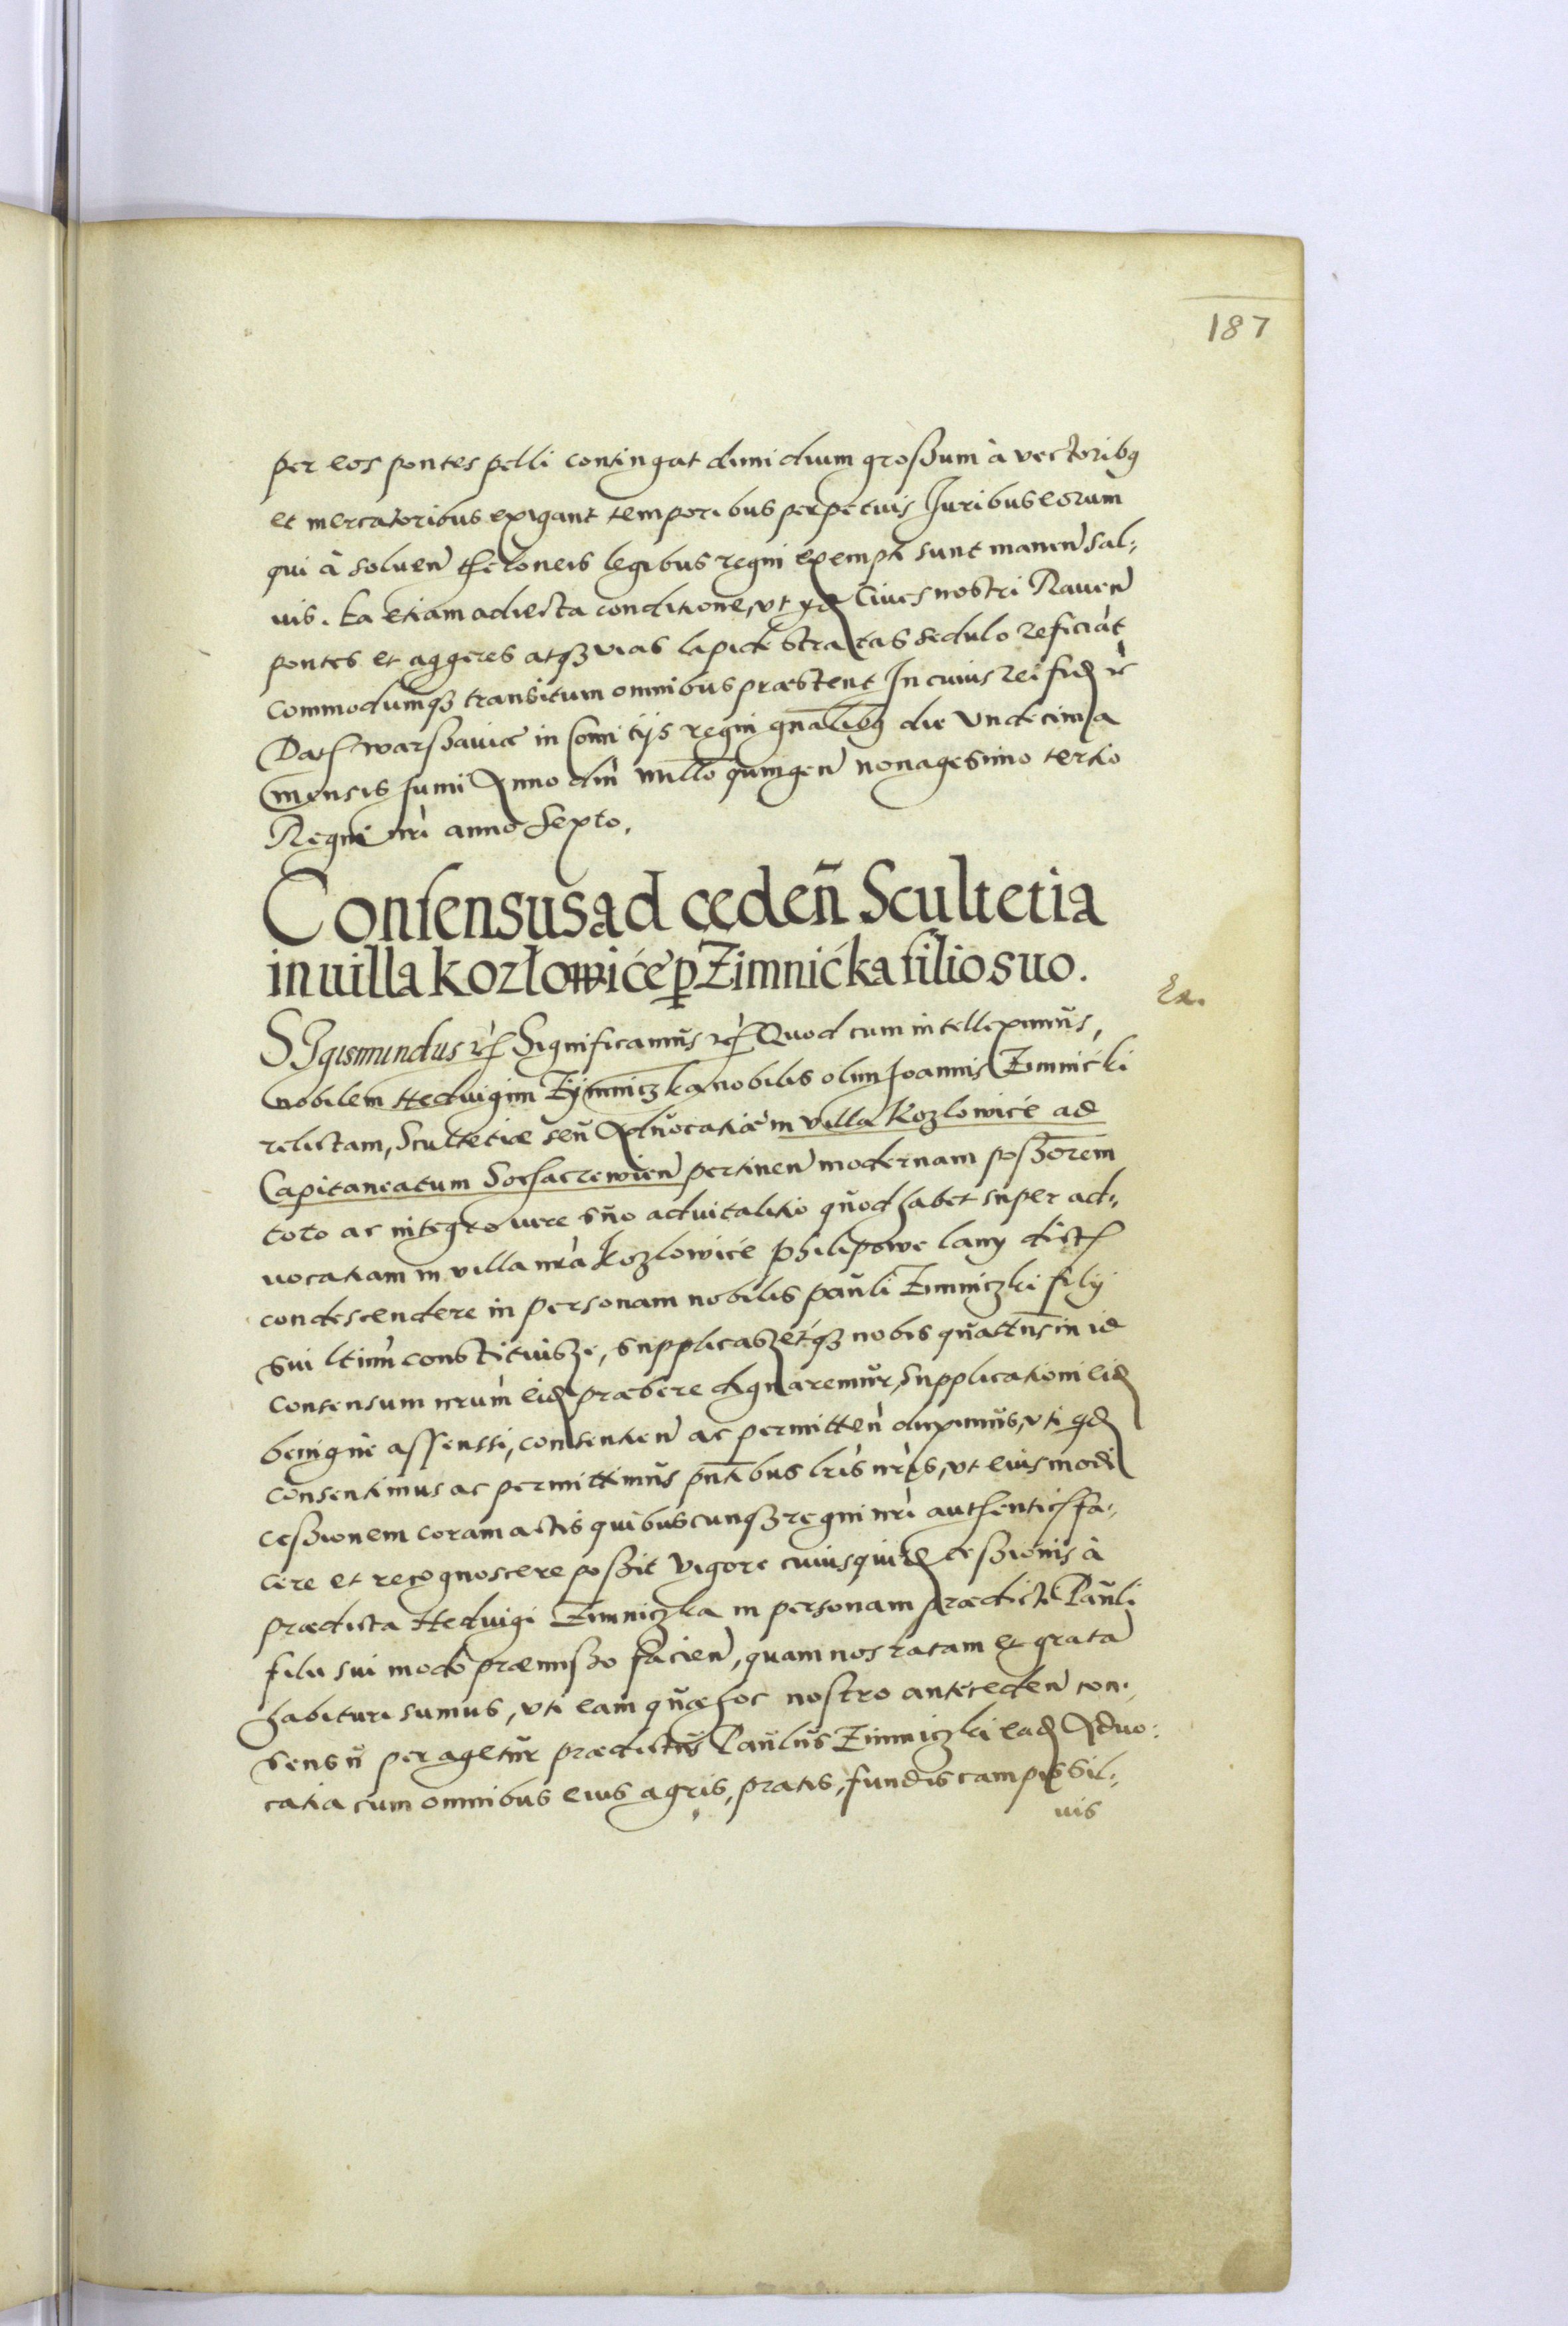 187
per eos pontes pelli contingat dimidium großum à vectoribꝯ
et mercatoribus exigant temporibus perpetuis Juribus eorum
qui à soluen̄ theloneis legibus regni exempti sunt manen̄ sal-
uis. Ea etiam adiecta conditione, vt ijd Ciues nostri Rauen̄
pontes et aggeres atqꝫ vias lapide stratas sedulo reficiāt
commodumqꝫ transitum omnibus præstent In cuius rei fid ꝛc̄
Dat warßauiæ in Comitijs regni gn̄alibꝯ die vndecima
mensis Junii Anno dni millo quingen̄ nonagesimo tertio
Regni nri anno Sexto.
Consensus ad ceden̄ Scultetia
in uilla kozłowićẻ ꝑ Zimnićka filio suo.
Ex.
SJgismundus ꝛc̄ Significamus ꝛc̄ Quod cum intelleximus,
nobilem Heduigim Zijmniczka nobilis olim Joannis Zimnićki
relictam, Scultetiæ seu Aduocatiæ in villa Kozlowićẻ ad
Capitaneatum Sochaczewien̄ pertinen̄ modernam poßorem
toto ac integro iure suo aduitalitio quod habet super ad-
uocatiam in villa nrà Kozlowićẻ philipowe lany dict
condescendere in personam nobilis pauli Zimniczki filij
sui ltim̄ constituisze, supplicaszetqꝫ nobis quattn̄s in id
consensum nrum eid præbere dignaremur, supplicationi eid
benigne assenssi, consentien̄ ac permitten̄ duximus, vti qd
consentimus ac permittimus pn̄tibus lris nris, vt eiusmodi
ceßionem coram actis quibuscunqꝫ regni nri authentich fa-
cere et recognoscere poßit vigore cuiusquid ceßionis à
prædicta Heduigi Zimniczka in personam prædicti Pauli
filii sui modo præmißo facien̄, quam nos ratam et gratā
habituri sumus, vti eam quæ hoc nostro anteceden̄ con-
sensu peragetur prædictus Paulus Zimniczki ead Aduo-
catia cum omnibus eius agris, pratis, fundis campis sil-
uis